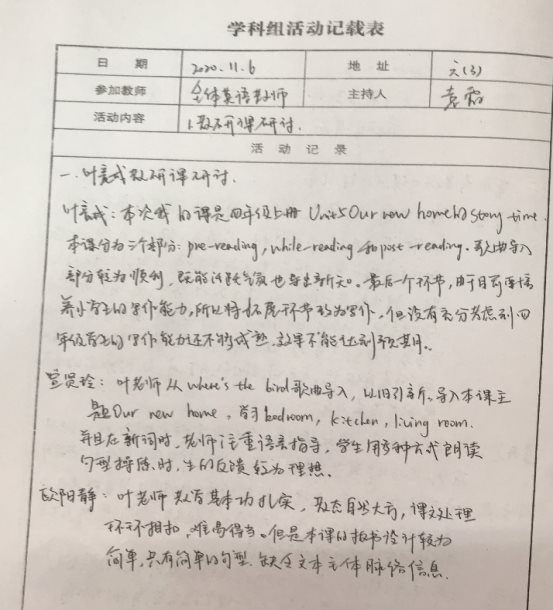 学科组活动记载表
日 期 2020.11.6 地 址 六(3)
参加教师 全体英语教师 主持人 袁
活动内容 1.教研课研讨.
活 动 记 录
一.叶 教研课研讨.
叶 :本次我的课是四年级上册 Unit5 Our new home的 story time.
本课分为三个部分: pre-reading, while-reading 和 post-reading. 歌曲导入
部分较为顺利, 既能活跃气氛也导出新知. 最后一个环节, 由于目前要培
养小学生的写作能力, 所以将拓展环节改为写作, 但没有充分考虑到四
年级学生的写作能力还不够成熟, 效果不能达到预期.
宣贤玲: 叶老师从where's the bird歌曲导入, 以旧引新, 导入本课主
题Our new home, 学习bedroom, kitchen, living room.
并且在新词时, 老师注重语素指导, 学生用多种方式朗读
句型操练时, 生的反馈较为理想.
欧阳静: 叶老师教学基本功扎实, 教态自然大方, 课文处理
环环相扣, 难易得当. 但是本课的板书设计较为
简单, 只有简单的句型. 缺乏文本主体脉络信息.